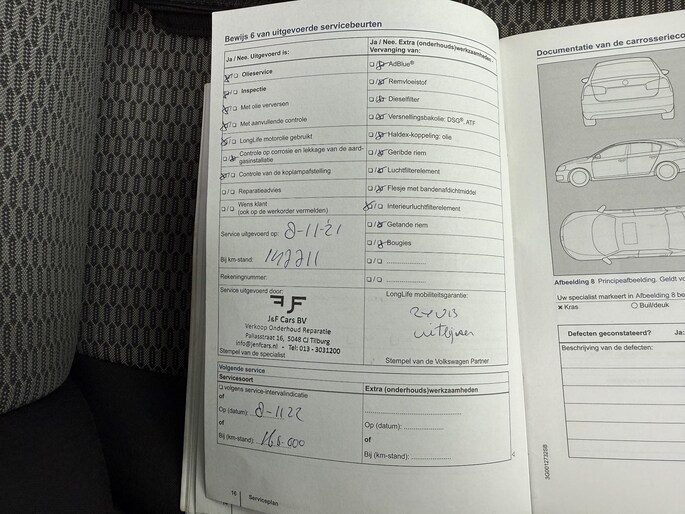 Bewijs 6 van uitgevoerde servicebeurten
Ja / Nee. Uitgevoerd is:
Olieservice
Inspectie
Met olie verversen
Met aanvullende controle
LongLife motorolie gebruikt
Controle op corrosie en lekkage van de aard-
gasinstallatie
Controle van de koplampafstelling
Reparatieadvies
Wens klant
(ook op de werkorder vermelden)
Service uitgevoerd op: 8-11-'21
Bij km-stand:
Rekeningnummer:
Service uitgevoerd door:
JF
J&F Cars BV
Verkoop Onderhoud Reparatie
Pallasstraat 16, 5048 CJ Tilburg
info@jenfcars.nl • Tel: 013 - 3031200
Stempel van de specialist
Ja / Nee. Extra (onderhouds)werkzaamheden
Vervanging van:
AdBlue®
Remvloeistof
Dieselfilter
Versnellingsbakolie: DSG®, ATF
Haldex-koppeling: olie
Geribde riem
Luchtfilterelement
Flesje met bandenafdichtmiddel
Interieurluchtfilterelement
Getande riem
Bougies
LongLife mobiliteitsgarantie:
Stempel van de Volkswagen Partner
Volgende service
Servicesoort
volgens service-intervalindicatie
of
Op (datum): 8-11 22
of
Bij (km-stand): 168.000
Extra (onderhouds)werkzaamheden
Op (datum):
of
Bij (km-stand):
16
Serviceplan
Documentatie van de carrosserieco
Afbeelding 8 Principeafbeelding. Geldt vo
Uw specialist markeert in Afbeelding 8 be
× Kras
Buil/deuk
Defecten geconstateerd? Ja:
Beschrijving van de defecten:
3G0012732SB